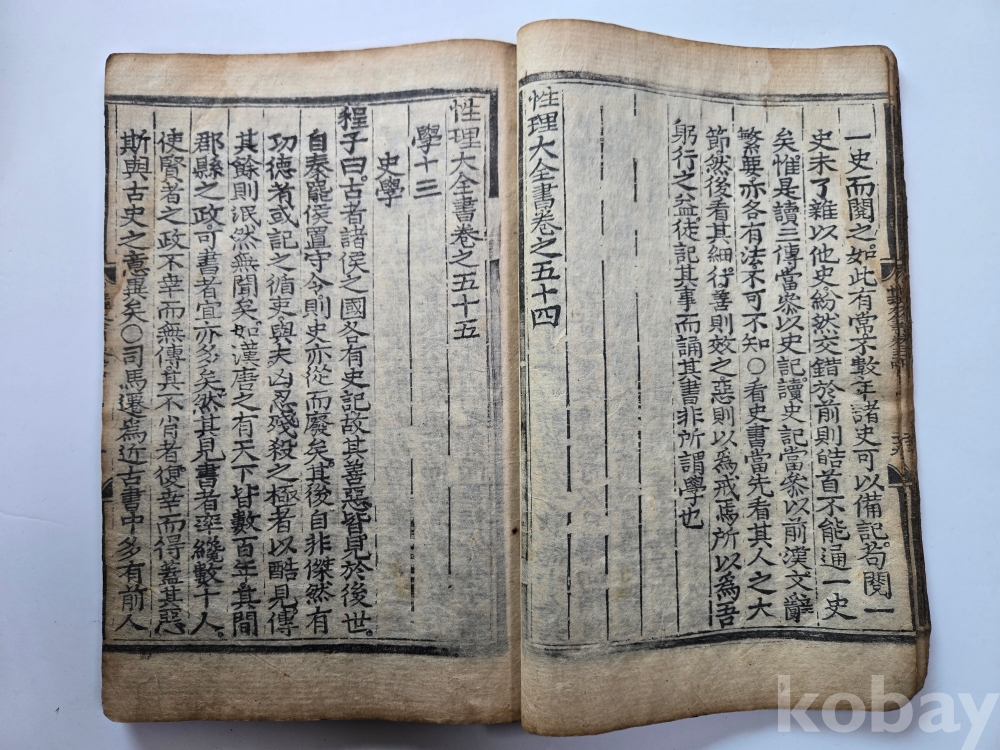 一史而閱之如此有常不數年諸史可以備記苟閱一
史未了雜以他史紛然交錯於前則皓首不能通一史
矣惟是讀三傳當叅以史記讀史記當叅以前漢文辭
繁要亦各有法不可不知○看史書當先看其人之大
節然後看其細行善則效之惡則以爲戒焉所以爲吾
躬行之益徒記其事而誦其書非所謂學也
性理大全書卷之五十四
性理大全書卷之五十五
學十三
史學
程子曰古者諸侯之國各有史記故其善惡皆見於後世
自秦罷侯置守令則史亦從而廢矣其後自非傑然有
功德者或記之循吏與夫凶忍殘殺之極者以酷見傳
其餘則泯然無聞矣如漢唐之有天下皆數百年其間
郡縣之政可書者宜亦多矣然其見書者率纔數十人
使賢者之政不幸而無傳其不肖者復幸而得蓋其惡
斯與古史之意異矣○司馬遷爲近古書中多有前人
kobay